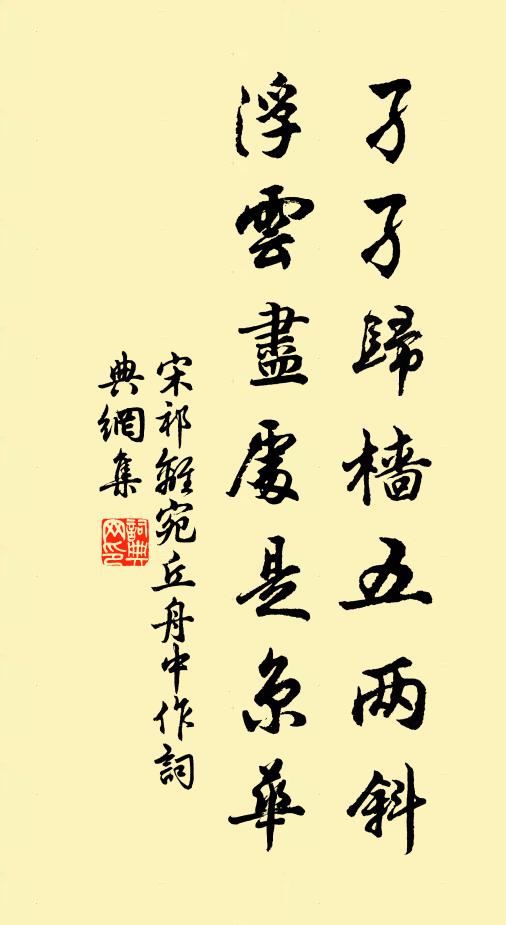 孑孑歸檣五两斜
浮雲盡處是京華
宋祁離宛丘舟中作詞
典網集
詞典
网印